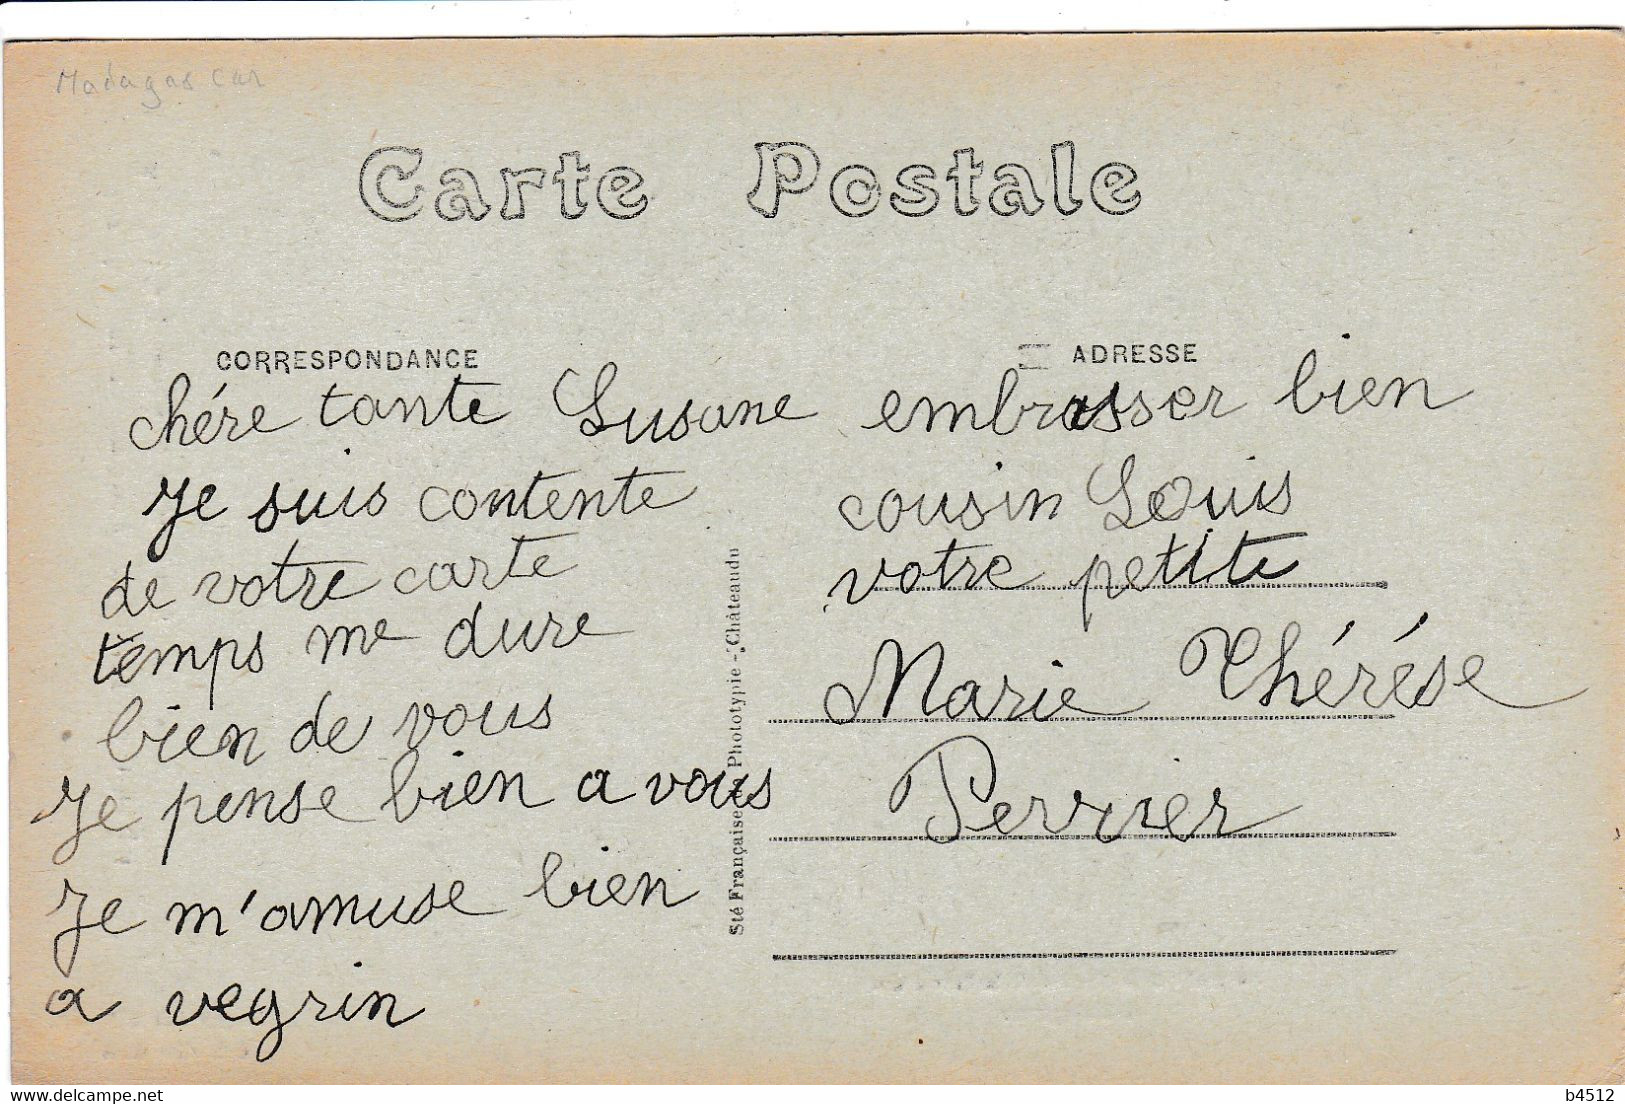 Madagascar
Carte Postale
CORRESPONDANCE
chére tante Susane
Je suis contente
de votre carte
temps me dure
bien de vous
Je pense bien a vous
Je m'amuse bien
a vegrin
Sté Française de Phototypie - Châteaudun
ADRESSE
embrasser bien
cousin Louis
votre petite
Marie Thérése
Perrier
www.delcampe.net
b4512